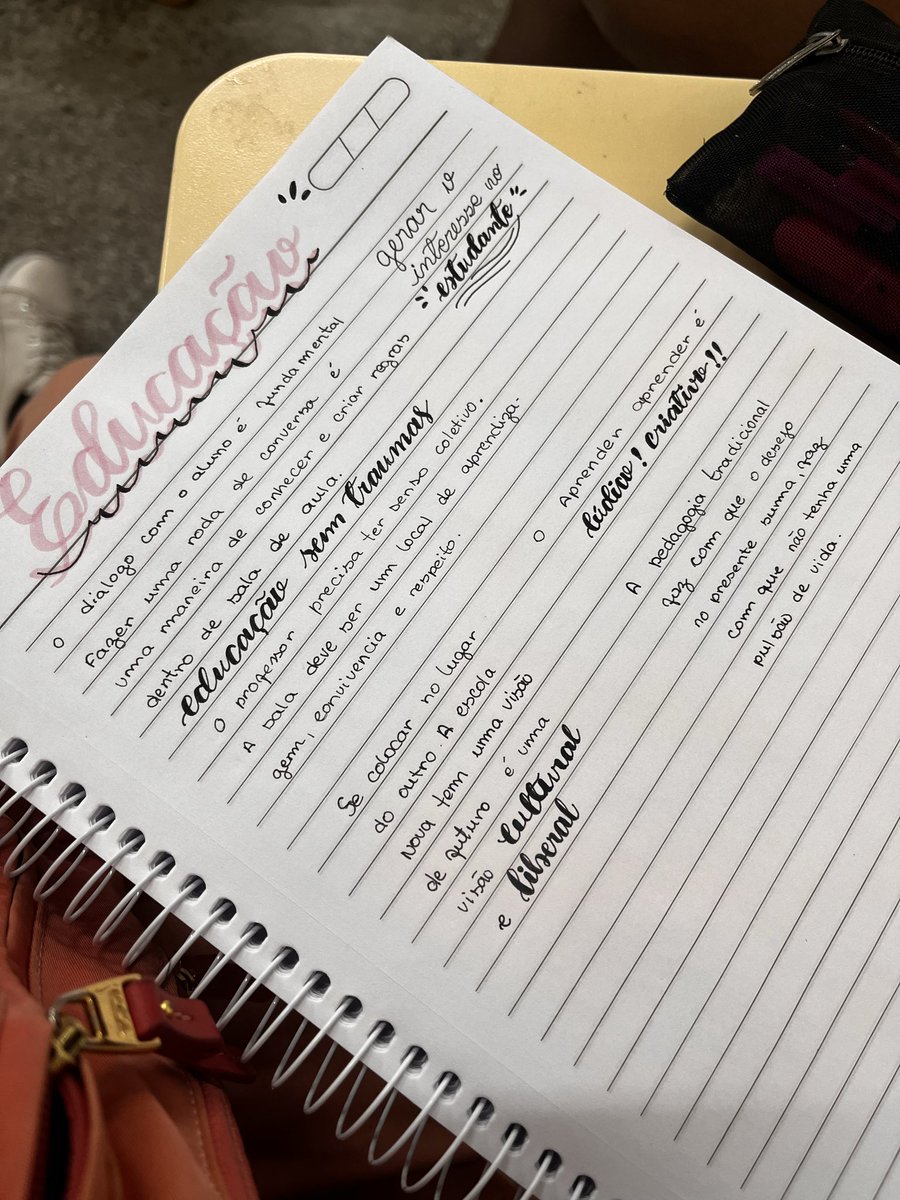 Educação
gerar o
interesse no
estudante
o dialogo com o aluno é fundamental
Fazer uma roda de conversa é
uma maneira de conhecer e criar regras
dentro de sala de aula.
educação sem traumas
O professor precisa ter senso coletivo.
A sala deve ser um local de aprendiza-
gem, convivencia e respeito.
Se colocar no lugar
do outro. A escola
Nova tem uma visão
de futuro é uma
visão cultural
e liberal
o Aprender aprender é
lúdico! criativo!!
A pedagogia tradicional
faz com que o desejo
no presente suma, faz
com que não tenha uma
pulsão de vida.